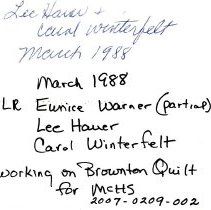 Lee Hauer +
Carol Winterfelt
March 1988
March 1988
LR Eunice Warner (partial)
Lee Hauer
Carol Winterfelt
working on Brownton Quilt
for McHS
2007-0209-002